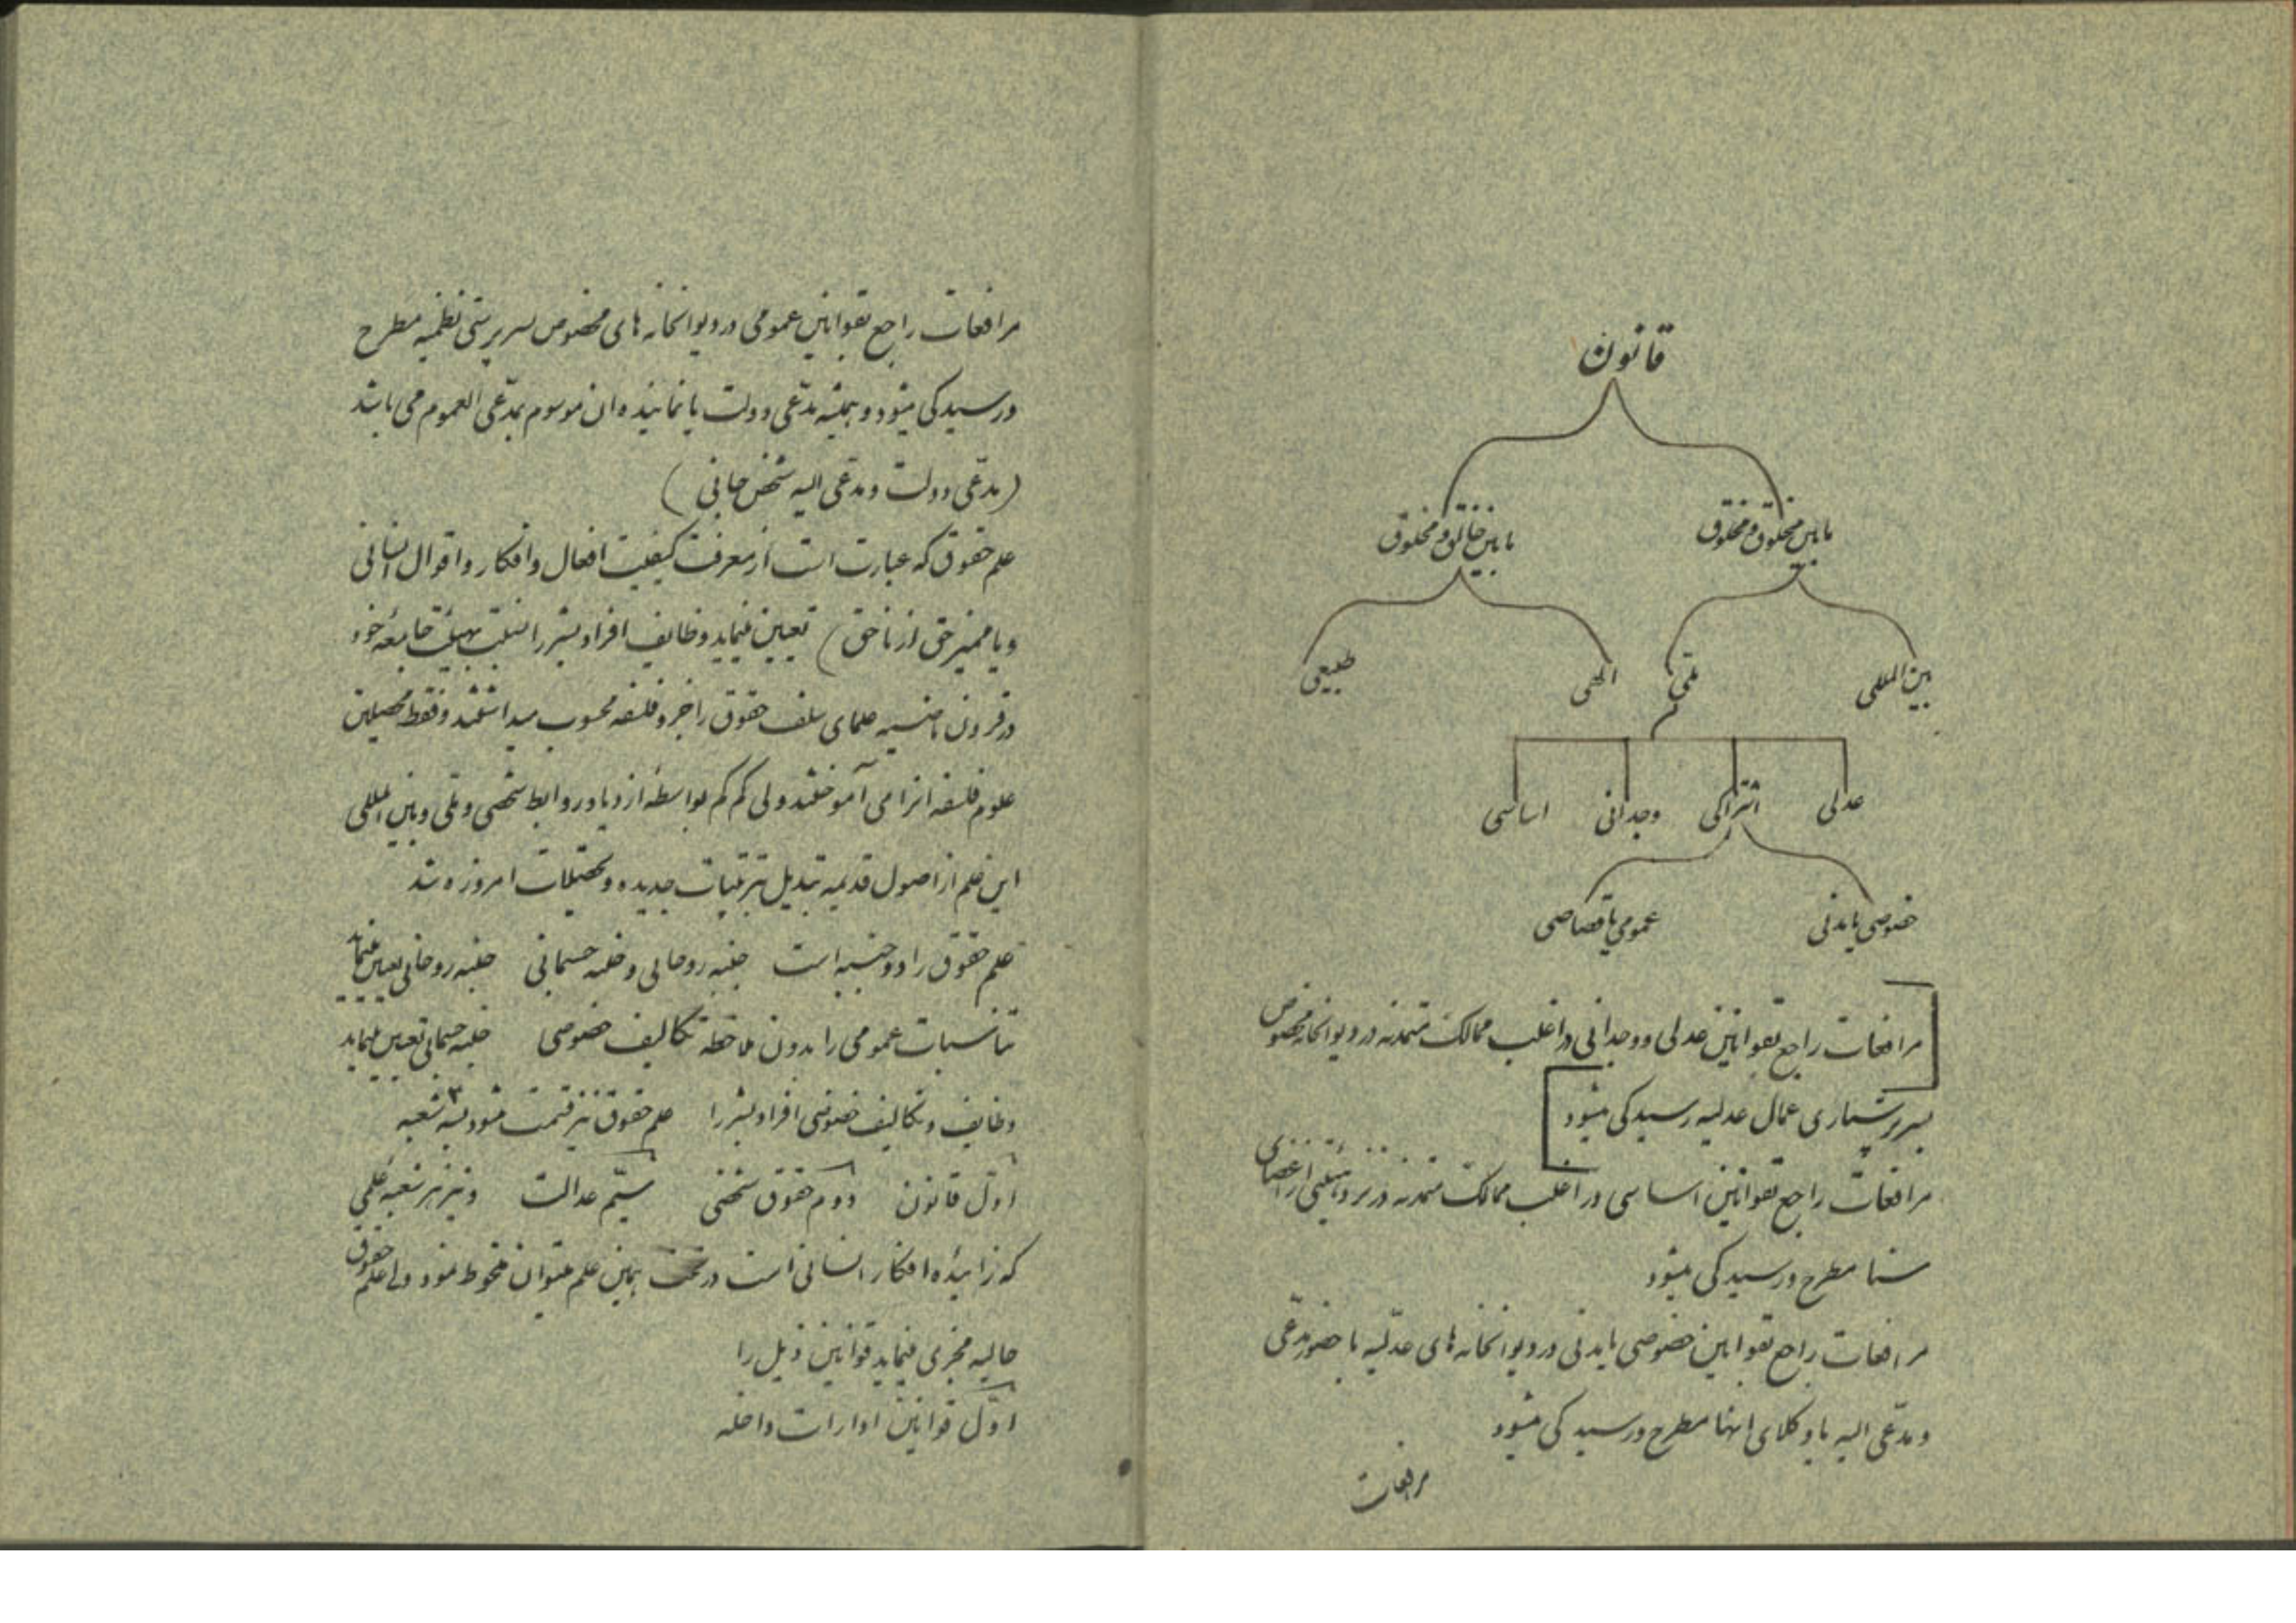 قانون
مابین مخلوق و مخلوق
مابین خالق و مخلوق
بین المللی
ملّی
الهی
طبیعی
عدلی
اشتراکی
وجدانی
اساسی
خصوصی یا مدنی
عمومی یا قصاصی
مرافعات راجع بقوانین عدلی و وجدانی در اغلب ممالک متمدنه در دیوانخانه مخصوص
بسرپرستاری عمال عدلیه رسیدگی میشود
مرافعات راجع بقوانین اساسی در اغلب ممالک متمدنه در نزد هیئتی از اعضای
سنا مطرح و رسیدگی میشود
مرافعات راجع بقوانین خصوصی یا مدنی در دیوانخانه های عدلیه با حضور مدّعی
و مدّعی الیه یا وکلای انها مطرح و رسیدگی میشود
مرافعات
مرافعات راجع بقوانین عمومی در دیوانخانه های مخصوص بسرپرستی نظمیه مطرح
و رسیدگی میشود و همیشه مدّعی دولت یا نماینده ان موسوم بمدّعی العموم می باشد
(مدّعی دولت و مدّعی الیه شخص جانی)
علم حقوق که عبارت است از معرفت کیفیت افعال و افکار و اقوال انسانی
و یا ممیز حق از ناحق) تعیین مینماید وظایف افراد بشر را نسبت بهیئت جامعه خود
در قرون ماضیه علمای سلف حقوق را جزو فلسفه محسوب میداشتند و فقط محصلین
علوم فلسفه انرا می آموختند ولی کم کم بواسطهٔ ازدیاد روابط شخصی و ملّی و بین المللی
این علم از اصول قدیمه تبدیل بترتیبات جدیده و تحصیلات امروزه شد
علم حقوق را دو جنبه است جنبه روحانی و جنبه جسمانی جنبه روحانی تعیین مینماید
تناسبات عمومی را بدون ملاحظه تکالیف خصوصی جنبه جسمانی تعیین مینماید
وظایف و تکالیف خصوصی افراد بشر را علم حقوق نیز قسمت میشود بسه ۳ شعبه
اوّل قانون دوم حقوق شخصی سیّم عدالت و نیز هر شعبه علمی
که زائیده افکار انسانی است در تحت همین علم میتوان محفوظ نمود ولی علم حقوق
حالیه مجری مینماید قوانین ذیل را
اوّل قوانین ادارات داخله